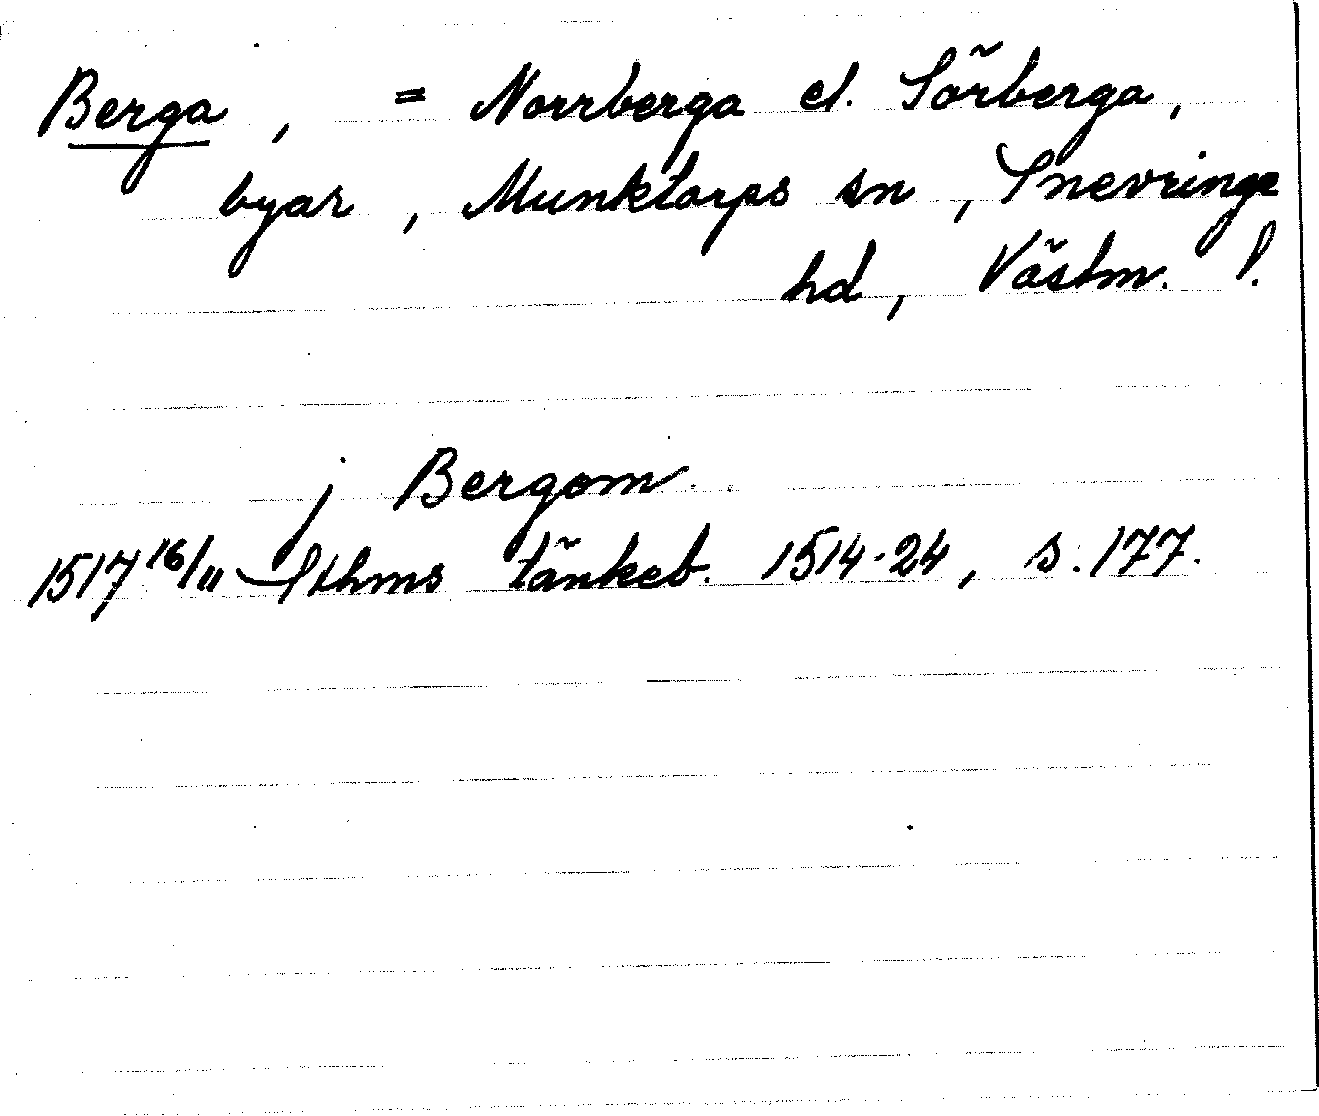 Berga, = Norrberga el. Sörberga,
byar, Munktorps sn, Snevringe
hd, Västm. l.
j Bergom.
1517 16/11 Sthms tänkeb. 1514-24, s. 177.